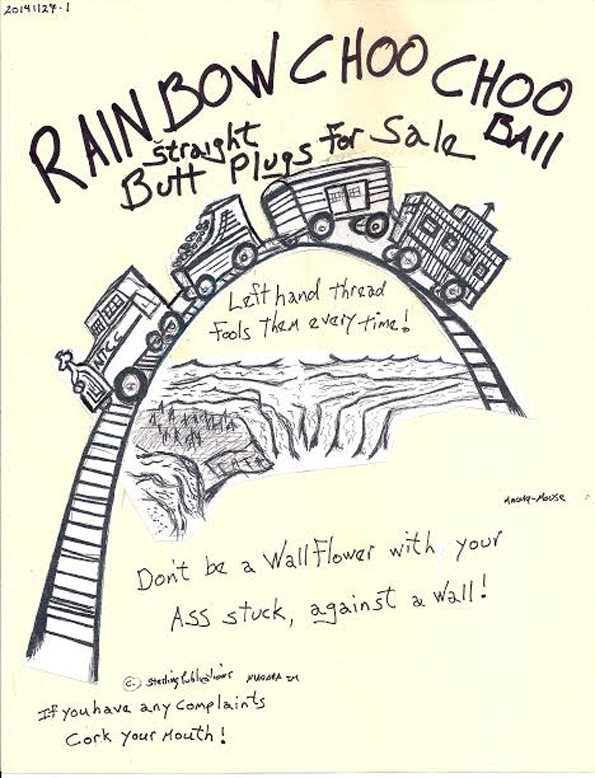 20191127.1
RAINBOW CHOO CHOO
BAll
straight
Butt Plugs For Sale
Left hand thread
Fools Them every time!
NTCC
Don't be a Wall Flower with your
Ass stuck, against a wall!
©. Sterling Publications
If you have any complaints
Cork your Mouth!